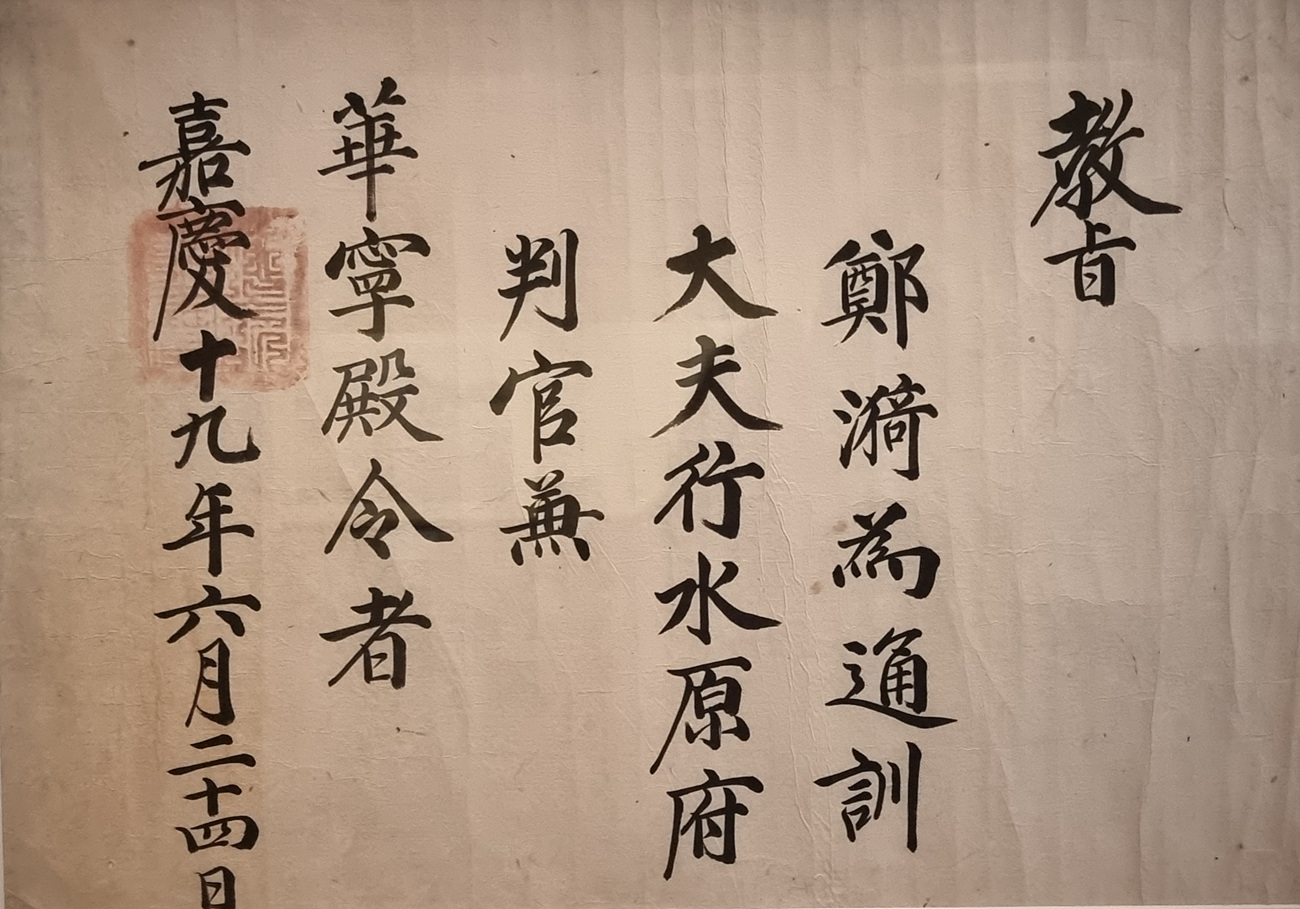 教旨
鄭漪為通訓
大夫行水原府
判官兼
華寧殿令者
嘉慶十九年六月二十四日